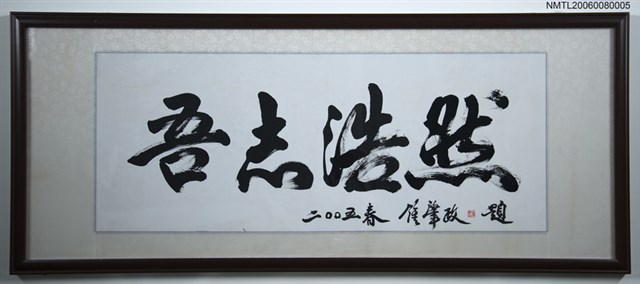 NMTL20060080005
吾志浩然
二〇〇五春 鍾肇政 題